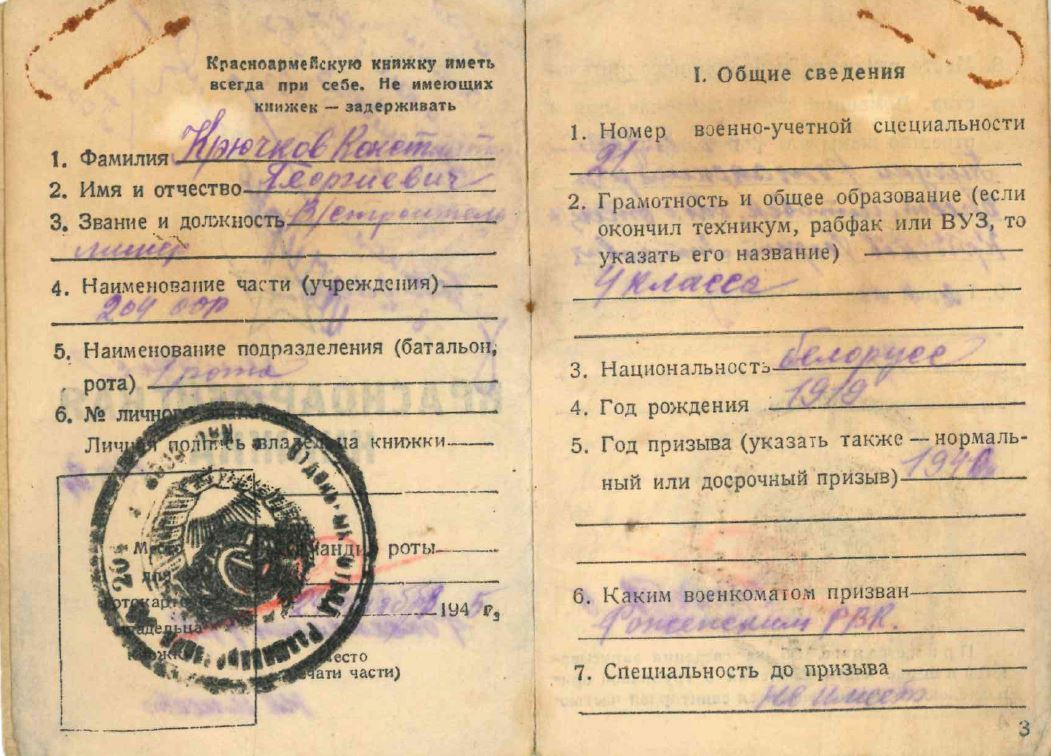 Красноармейскую книжку иметь
всегда при себе. Не имеющих
книжек — задерживать
1. Фамилия Крючков Конст
2. Имя и отчество Георгиевич
3. Звание и должность В/строитель
4. Наименование части (учреждения)
204
5. Наименование подразделения (батальон,
рота) 1 рота
6. № личного знака
Личная подпись владельца книжки
Место
для
фотокарточки
владельца
книжки
Командир роты
1945 г.
Место
печати части)
I. Общие сведения
1. Номер военно-учетной специальности
21
2. Грамотность и общее образование (если
окончил техникум, рабфак или ВУЗ, то
указать его название)
4 класса
3. Национальность белорусс
4. Год рождения 1919
5. Год призыва (указать также — нормаль-
ный или досрочный призыв) 1940
6. Каким военкоматом призван
РВК.
7. Специальность до призыва
не имеет
3